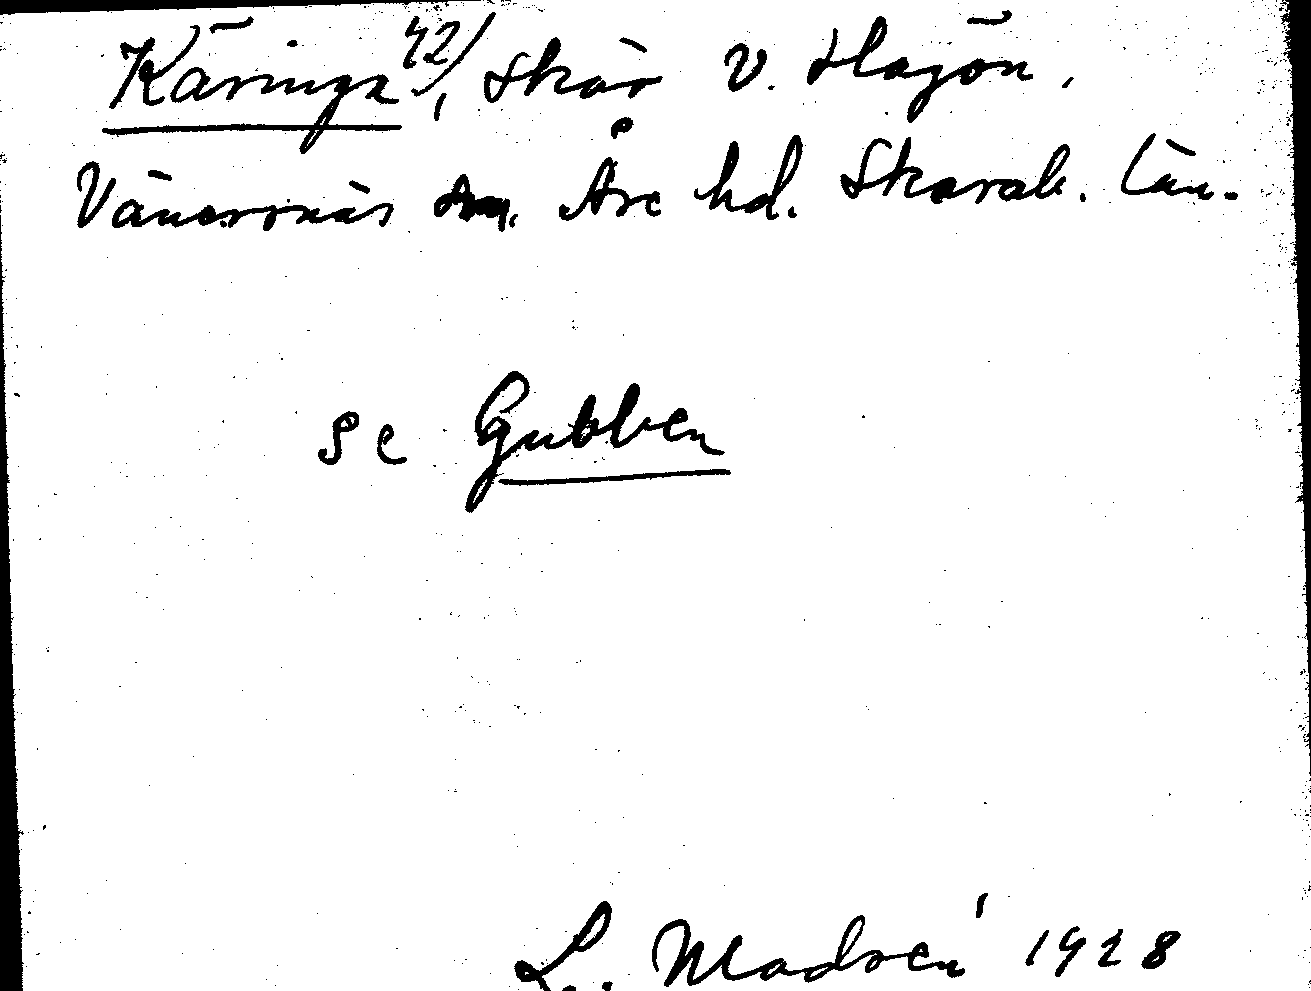 Käringa 42/, Skär v. Hagön.
Vänersnäs sn. Åse hd. Skarab. län.
se Gubben
L. Modsén 1928